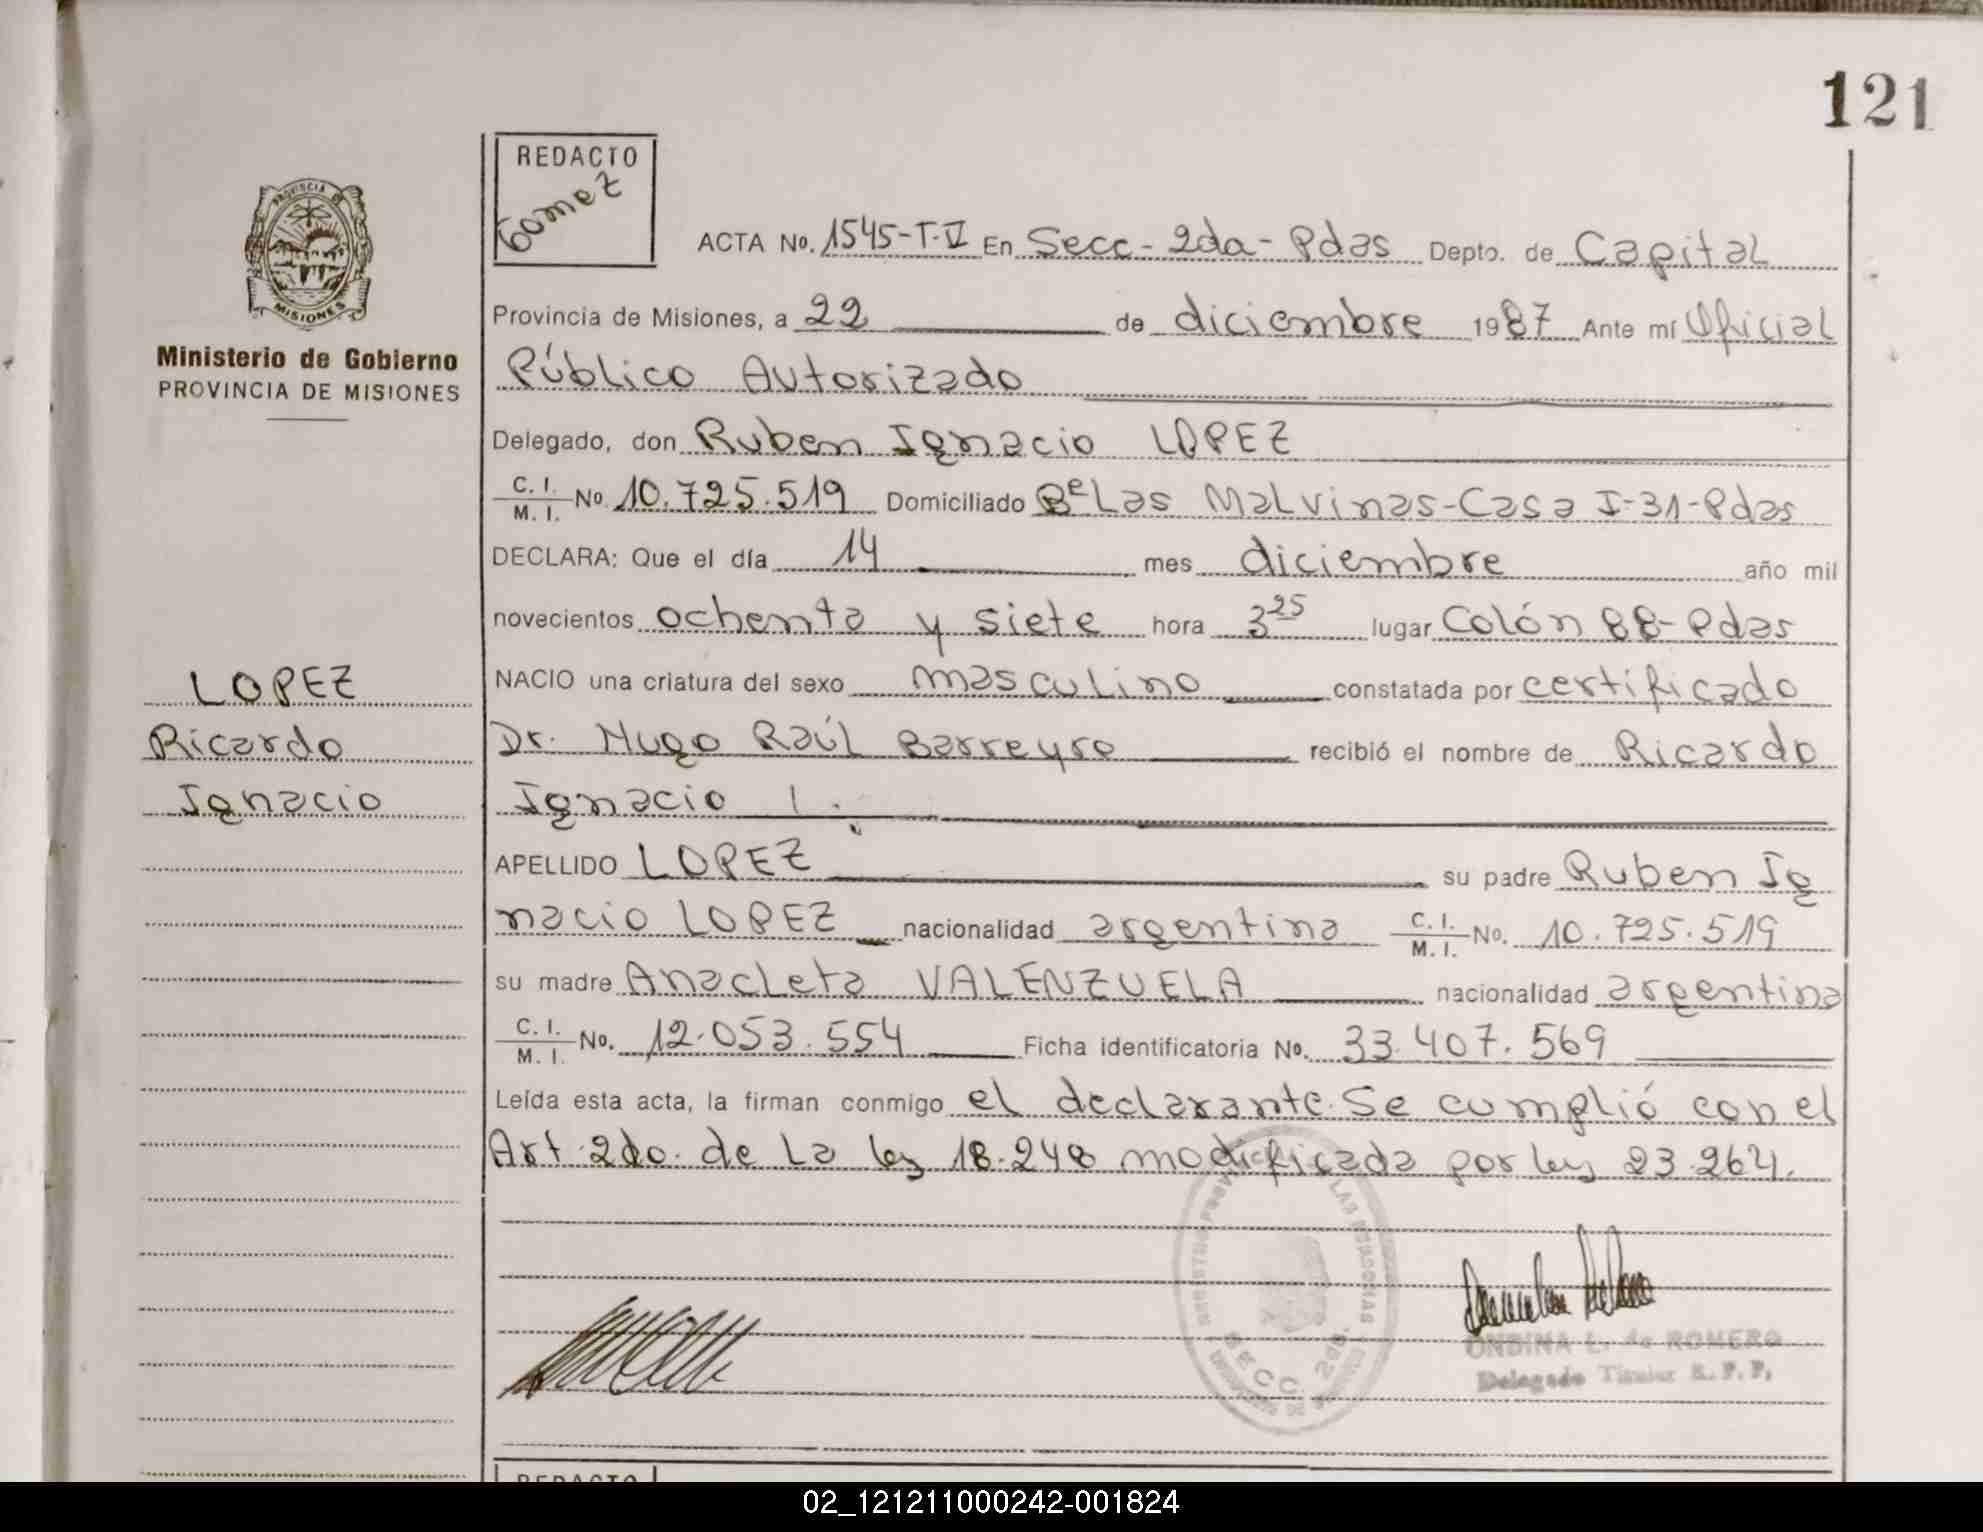 121
REDACTO
Gomez
PROVINCIA DE
MISIONES
Ministerio de Gobierno
PROVINCIA DE MISIONES
ACTA No. 1545-T-V En Secc- 2da- Pdas Depto. de Capital
Provincia de Misiones, a 22 de diciembre 1987 Ante mí Oficial
Público Autorizado
Delegado, don Ruben Ignacio LOPEZ
C. I. / M. I. No. 10.725.519 Domiciliado Bº Las Malvinas-Casa I-31-Pdas
DECLARA: Que el día 14 mes diciembre año mil
novecientos ochenta y siete hora 3 25 lugar Colón 88- Pdas
NACIO una criatura del sexo masculino constatada por certificado
Dr. Hugo Raúl Barreyro recibió el nombre de Ricardo
Ignacio
APELLIDO LOPEZ su padre Ruben Ig
nacio LOPEZ nacionalidad argentina C. I. / M. I. No. 10.725.519
su madre Anacleta VALENZUELA nacionalidad argentina
C. I. / M. I. No. 12.053.554 Ficha identificatoria No. 33.407.569
Leída esta acta, la firman conmigo el declarante. Se cumplió con el
Art. 2do. de la ley 18.248 modificada por ley 23.264.
LOPEZ
Ricardo
Ignacio
LAS PERSONAS
SECC. 2da.
ONDINA L. de ROMERO
Delegado Titular R. P. P.
REDACTO
02_121211000242-001824